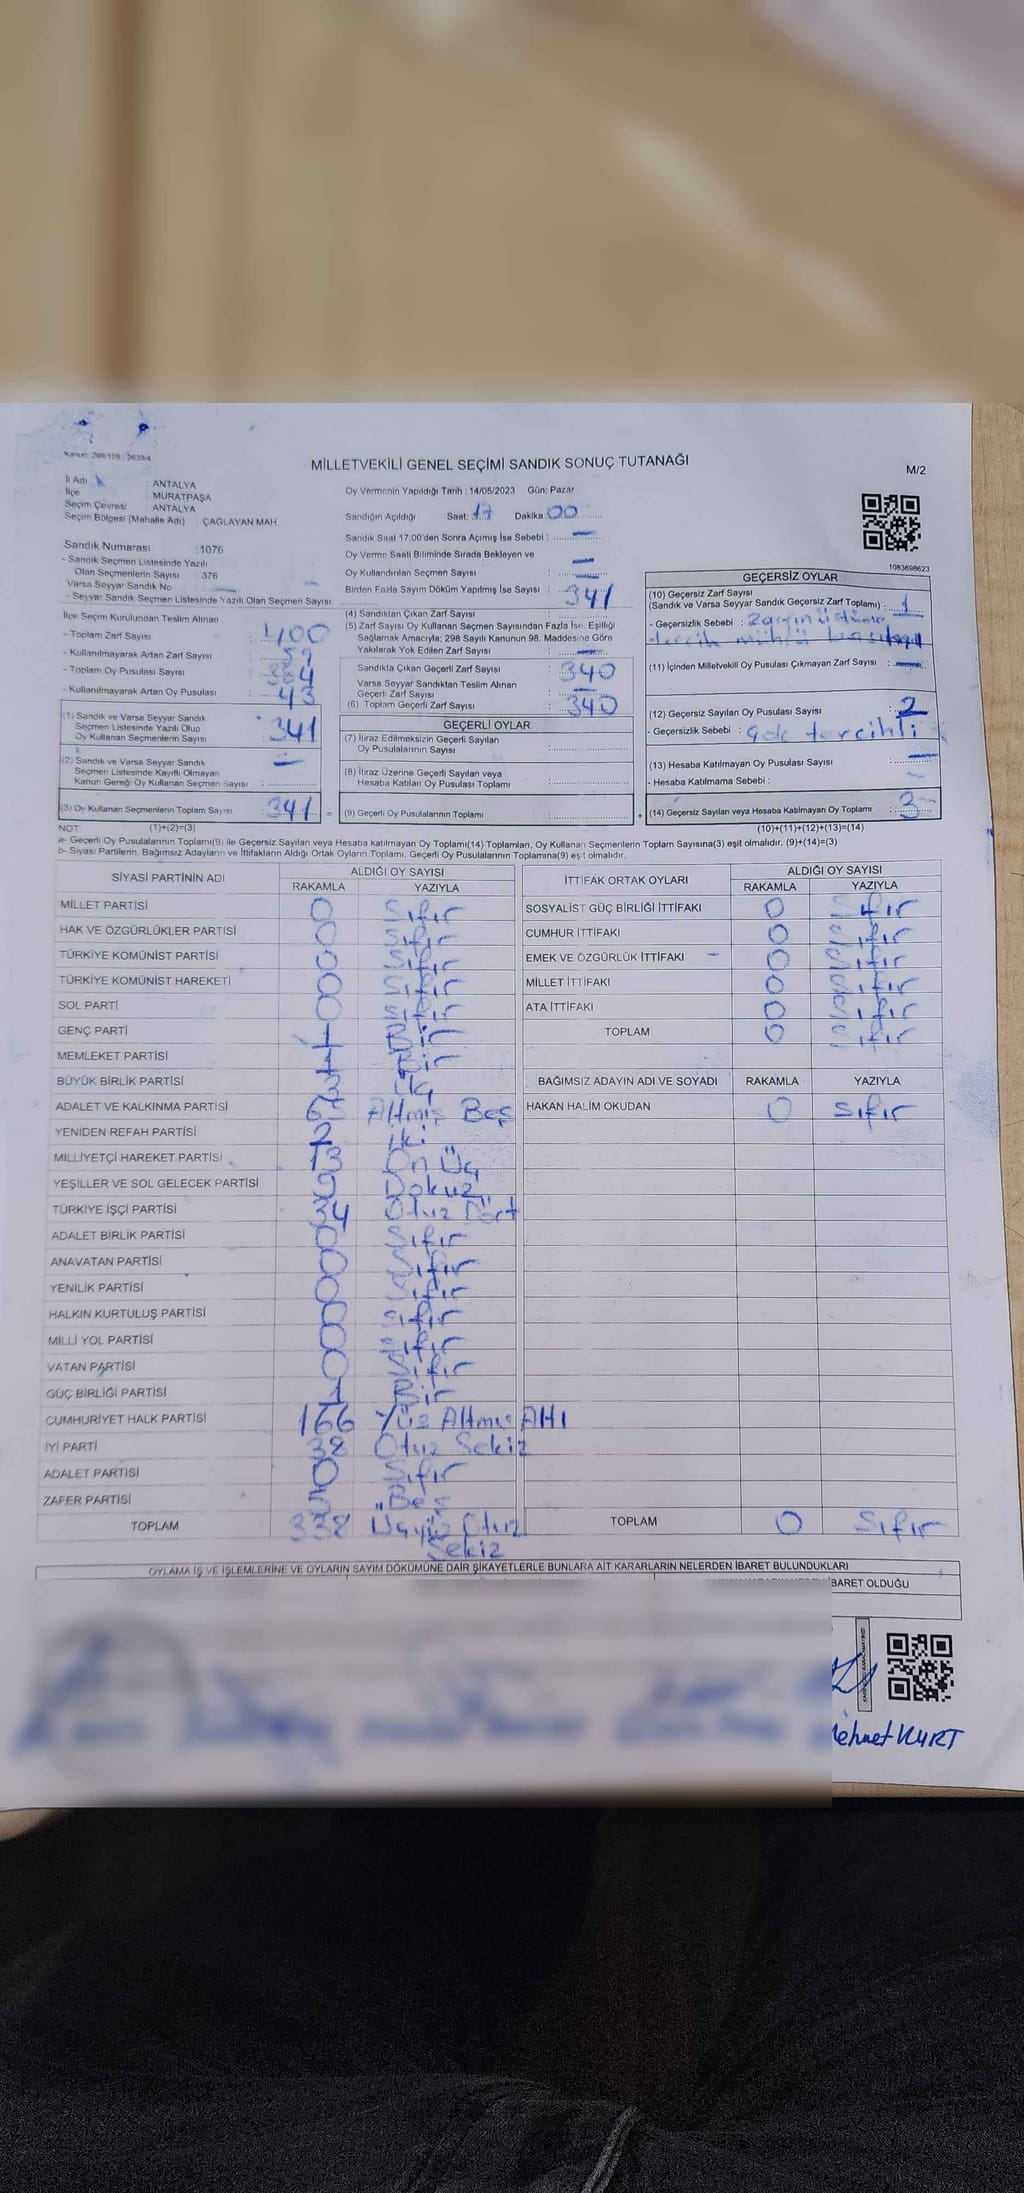 Kanun: 298/105 ; 2839/4
MİLLETVEKİLİ GENEL SEÇİMİ SANDIK SONUÇ TUTANAĞI
M/2
İl Adı ANTALYA
İlçe MURATPAŞA
Seçim Çevresi ANTALYA
Seçim Bölgesi (Mahalle Adı) ÇAĞLAYAN MAH.
Oy Vermenin Yapıldığı Tarih : 14/05/2023 Gün: Pazar
Sandığın Açıldığı Saat: 17 Dakika 00
Sandık Saat 17.00'den Sonra Açımış İse Sebebi : —
Oy Verme Saati Bitiminde Sırada Bekleyen ve
Oy Kullandırılan Seçmen Sayısı : —
Birden Fazla Sayım Döküm Yapılmış İse Sayısı : —
Sandık Numarası :1076
- Sandık Seçmen Listesinde Yazılı
Olan Seçmenlerin Sayısı 376
Varsa Seyyar Sandık No —
- Seyyar Sandık Seçmen Listesinde Yazılı Olan Seçmen Sayısı:
İlçe Seçim Kurulundan Teslim Alınan
- Toplam Zarf Sayısı : 400
- Kullanılmayarak Artan Zarf Sayısı : 59
- Toplam Oy Pusulası Sayısı : 384
- Kullanılmayarak Artan Oy Pusulası : 43
(1) Sandık ve Varsa Seyyar Sandık
Seçmen Listesinde Yazılı Olup
Oy Kullanan Seçmenlerin Sayısı : 341
(2) Sandık ve Varsa Seyyar Sandık
Seçmen Listesinde Kayıtlı Olmayan
Kanun Gereği Oy Kullanan Seçmen Sayısı : —
(3) Oy Kullanan Seçmenlerin Toplam Sayısı : 341
(4) Sandıktan Çıkan Zarf Sayısı : 341
(5) Zarf Sayısı Oy Kullanan Seçmen Sayısından Fazla İse, Eşitliği
Sağlamak Amacıyla; 298 Sayılı Kanunun 98. Maddesine Göre
Yakılarak Yok Edilen Zarf Sayısı : —
Sandıkta Çıkan Geçerli Zarf Sayısı : 340
Varsa Seyyar Sandıktan Teslim Alınan
Geçerli Zarf Sayısı : —
(6) Toplam Geçerli Zarf Sayısı : 340
GEÇERLİ OYLAR
(7) İtiraz Edilmeksizin Geçerli Sayılan
Oy Pusulalarının Sayısı :
(8) İtiraz Üzerine Geçerli Sayılan veya
Hesaba Katılan Oy Pusulası Toplamı :
(9) Geçerli Oy Pusulalarının Toplamı :
1083698623
GEÇERSİZ OYLAR
(10) Geçersiz Zarf Sayısı
(Sandık ve Varsa Seyyar Sandık Geçersiz Zarf Toplamı) : 1
- Geçersizlik Sebebi : Zarfın üstüne
tercih mührü
(11) İçinden Milletvekili Oy Pusulası Çıkmayan Zarf Sayısı : —
(12) Geçersiz Sayılan Oy Pusulası Sayısı : 2
- Geçersizlik Sebebi : Çok tercihli
(13) Hesaba Katılmayan Oy Pusulası Sayısı : —
- Hesaba Katılmama Sebebi : —
(14) Geçersiz Sayılan veya Hesaba Katılmayan Oy Toplamı : 3
NOT: (1)+(2)=(3)
(10)+(11)+(12)+(13)=(14)
a- Geçerli Oy Pusulalarının Toplamı(9) ile Geçersiz Sayılan veya Hesaba katılmayan Oy Toplamı(14) Toplamları, Oy Kullanan Seçmenlerin Toplam Sayısına(3) eşit olmalıdır. (9)+(14)=(3)
b- Siyasi Partilerin, Bağımsız Adayların ve İttifakların Aldığı Ortak Oyların Toplamı, Geçerli Oy Pusulalarının Toplamına(9) eşit olmalıdır.
SİYASİ PARTİNİN ADI ALDIĞI OY SAYISI
RAKAMLA YAZIYLA
MİLLET PARTİSİ 0 Sıfır
HAK VE ÖZGÜRLÜKLER PARTİSİ 0 Sıfır
TÜRKİYE KOMÜNİST PARTİSİ 0 Sıfır
TÜRKİYE KOMÜNİST HAREKETİ 0 Sıfır
SOL PARTİ 0 Sıfır
GENÇ PARTİ 1 Bir
MEMLEKET PARTİSİ 1 Bir
BÜYÜK BİRLİK PARTİSİ 3 Üç
ADALET VE KALKINMA PARTİSİ 65 Altmış Beş
YENİDEN REFAH PARTİSİ 2 İki
MİLLİYETÇİ HAREKET PARTİSİ 13 On Üç
YEŞİLLER VE SOL GELECEK PARTİSİ 9 Dokuz
TÜRKİYE İŞÇİ PARTİSİ 34 Otuz Dört
ADALET BİRLİK PARTİSİ 0 Sıfır
ANAVATAN PARTİSİ 0 Sıfır
YENİLİK PARTİSİ 0 Sıfır
HALKIN KURTULUŞ PARTİSİ 0 Sıfır
MİLLİ YOL PARTİSİ 0 Sıfır
VATAN PARTİSİ 0 Sıfır
GÜÇ BİRLİĞİ PARTİSİ 1 Bir
CUMHURİYET HALK PARTİSİ 166 Yüz Altmış Altı
İYİ PARTİ 38 Otuz Sekiz
ADALET PARTİSİ 0 Sıfır
ZAFER PARTİSİ 5 Beş
TOPLAM 338 Üçyüz Otuz
Sekiz
İTTİFAK ORTAK OYLARI ALDIĞI OY SAYISI
RAKAMLA YAZIYLA
SOSYALİST GÜÇ BİRLİĞİ İTTİFAKI 0 Sıfır
CUMHUR İTTİFAKI 0 Sıfır
EMEK VE ÖZGÜRLÜK İTTİFAKI 0 Sıfır
MİLLET İTTİFAKI 0 Sıfır
ATA İTTİFAKI 0 Sıfır
TOPLAM 0 Sıfır
BAĞIMSIZ ADAYIN ADI VE SOYADI RAKAMLA YAZIYLA
HAKAN HALİM OKUDAN 0 Sıfır
TOPLAM 0 Sıfır
OYLAMA İŞ VE İŞLEMLERİNE VE OYLARIN SAYIM DÖKÜMÜNE DAİR ŞİKAYETLERLE BUNLARA AİT KARARLARIN NELERDEN İBARET BULUNDUKLARI
İBARET OLDUĞU
Mehmet KURT